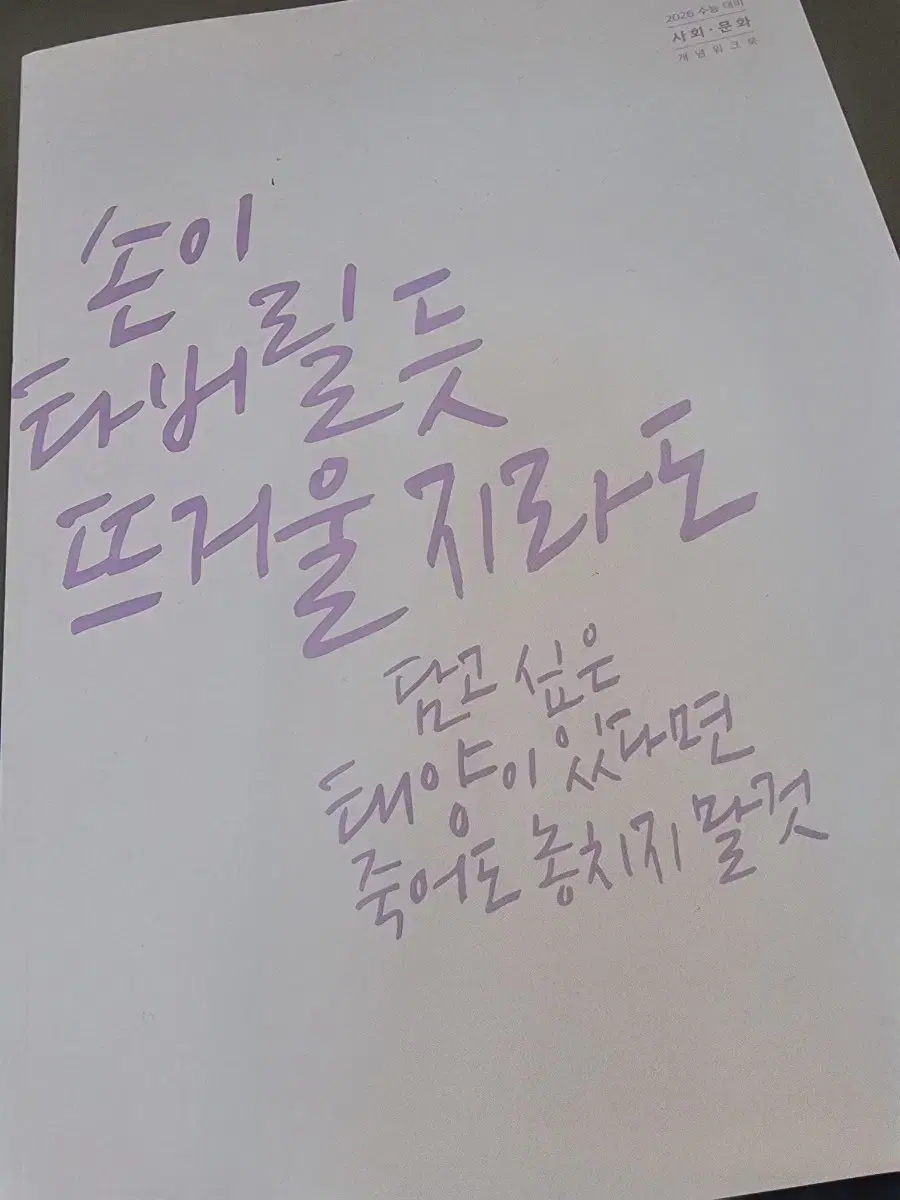 2026 수능 대비
사회·문화
개념워크북
손이
타버릴 듯
뜨거울지라도
담고 싶은
태양이 있다면
죽어도 놓치지 말 것